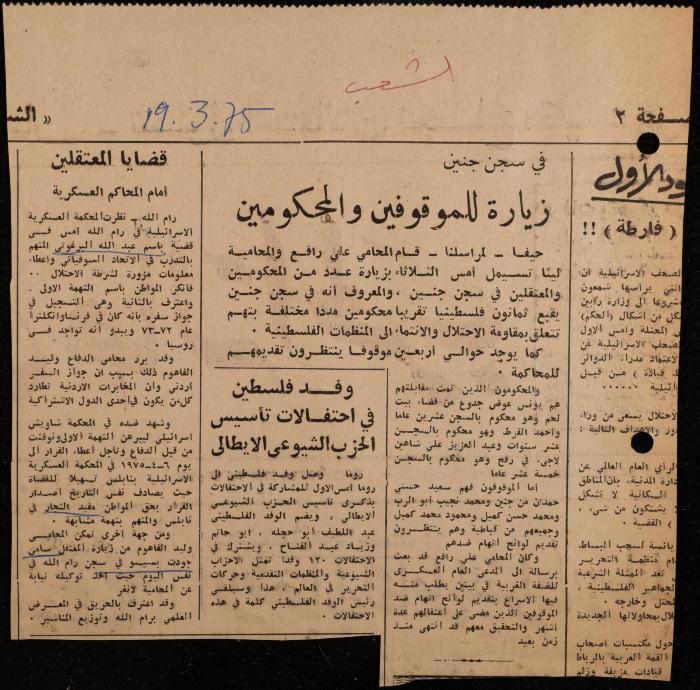 الشعب
صفحة ٢
« الش
19.3.75
في سجن جنين
زيارة للموقوفين والمحكومين
حيفا – لمراسلنا – قام المحامي علي رافع والمحامية
ليئا تسيمل أمس الثلاثاء بزيارة عدد من المحكومين
والمعتقلين في سجن جنين ، والمعروف أنه في سجن جنين
يقبع ثمانون فلسطينيا تقريبا محكومين مددا مختلفة بتهم
تتعلق بمقاومة الاحتلال والانتماء الى المنظمات الفلسطينية .
كما يوجد حوالي أربعين موقوفا ينتظرون تقديمهم
للمحاكمة .
والمحكومون الذين تمت مقابلتهم
هم يونس عوض جدوع من قضاء بيت
لحم وهو محكوم بالسجن عشرين عاما
واحمد القرط وهو محكوم بالسجن
عشر سنوات وعبد العزيز علي شاهين
لاجىء في رفح وهو محكوم بالسجن
خمسة عشر عاما
اما الموقوفون فهم سعيد حسني
حمدان من جنين ومحمد نجيب أبو الرب
ومحمد حسن كميل ومحمود محمد كميل
وجميعهم من قباطية وهم ينتظرون
تقديم لوائح اتهام ضدهم
وكان المحامي علي رافع قد بعث
برسالة الى المدعي العام العسكرى
للضفة الغربية في بيتين يطلب منه
فيها الاسراع بتقديم لوائح اتهام ضد
الموقوفين الذين مضى على اعتقالهم عدة
اشهر والتحقيق معهم قد انتهى منذ
زمن بعيد
وفد فلسطين
في احتفالات تأسيس
الحزب الشيوعي الايطالي
روما – وصل وفد فلسطيني الى
روما أمس الاول للمشاركة في الاحتفالات
بذكرى تأسيس الحزب الشيوعي
الايطالي ، ويضم الوفد الفلسطيني
عبد اللطيف أبو حجله ، ابو حاتم
وزياد عبد الفتاح ، ويشترك في
الاحتفالات ١٣٠ وفدا تمثل الاحزاب
الشيوعية والمنظمات التقدمية وحركات
التحرير في العالم ، هذا وسيلقي
رئيس الوفد الفلسطيني كلمة في هذه
الاحتفالات .
قضايا المعتقلين
أمام المحاكم العسكرية
رام الله – نظرت المحكمة العسكرية
الاسرائيلية في رام الله امس في
قضية باسم عبد الله البرغوثي المتهم
بالتدرب في الاتحاد السوفياتي واعطاء
معلومات مزورة لشرطة الاحتلال ..
فانكر المواطن باسم التهمة الاولى .
واعترف بالثانية وهي التسجيل في
جواز سفره بأنه كان في فرنسا وانكلترا
عام ٧٢–٧٣ ويبدو أنه تواجد في
روسيا .
وقد برر محامي الدفاع وليد
الفاهوم ذلك بسبب ان جواز السفر
اردني وأن المخابرات الاردنية تطارد
كل من يكون في احدى الدول الاشتراكية
وشهد ضده في المحكمة شاويش
اسرائيلي ليبرهن التهمة الاولى ونوقشت
من قبل الدفاع وتأجل أعطاء القرار الى
يوم ٦–٤–١٩٧٥ في المحكمة العسكرية
الاسرائيلية بنابلس تسهيلا للقضاة
حيث يصادف نفس التاريخ اصدار
القرار بحق المواطن مفيد النجار في
نابلس والمتهم بتهمة مشابهة .
ومن جهة أخرى تمكن المحامي
وليد الفاهوم من زيارة المعتقل سامي
جودت بسيسو في سجن رام الله في
نفس اليوم حيث أخذ توكيله نيابة
عن المحامية لانغر
وقد اعترف بالحريق في المعرض
العلمي برام الله وتوزيع المناشير .
ود الأول
( فارطة ) !!
لصحف الاسرائيلية ان
التي يرأسها شمعون
شروعا الى وزارة رابين
كل من أشكال ( الحكم )
المحتلة وأمس الاول
لصحف الاسرائيلية عن
الاعتماد مدراء الدوائر
قيادة ) من قبل
ائيلية ......
الاحتلال يسعى من وراء
ور والاهداف التالية :
الرأي العام العالمي عن
دارة المدنية، بان المناطق
السكانية لا تشكل
يشتكون من شيء ،
( القضية .
يائسة لسحب البساط
منظمة التحرير
تعد الممثلة الشرعية
لجماهير الفلسطينية
لمحتل وخارجه .
لال بمحاولاتها الجديدة
حول مكتسبات اصحاب
القمة العربية بالرباط
قيادات مزيفة وزلم